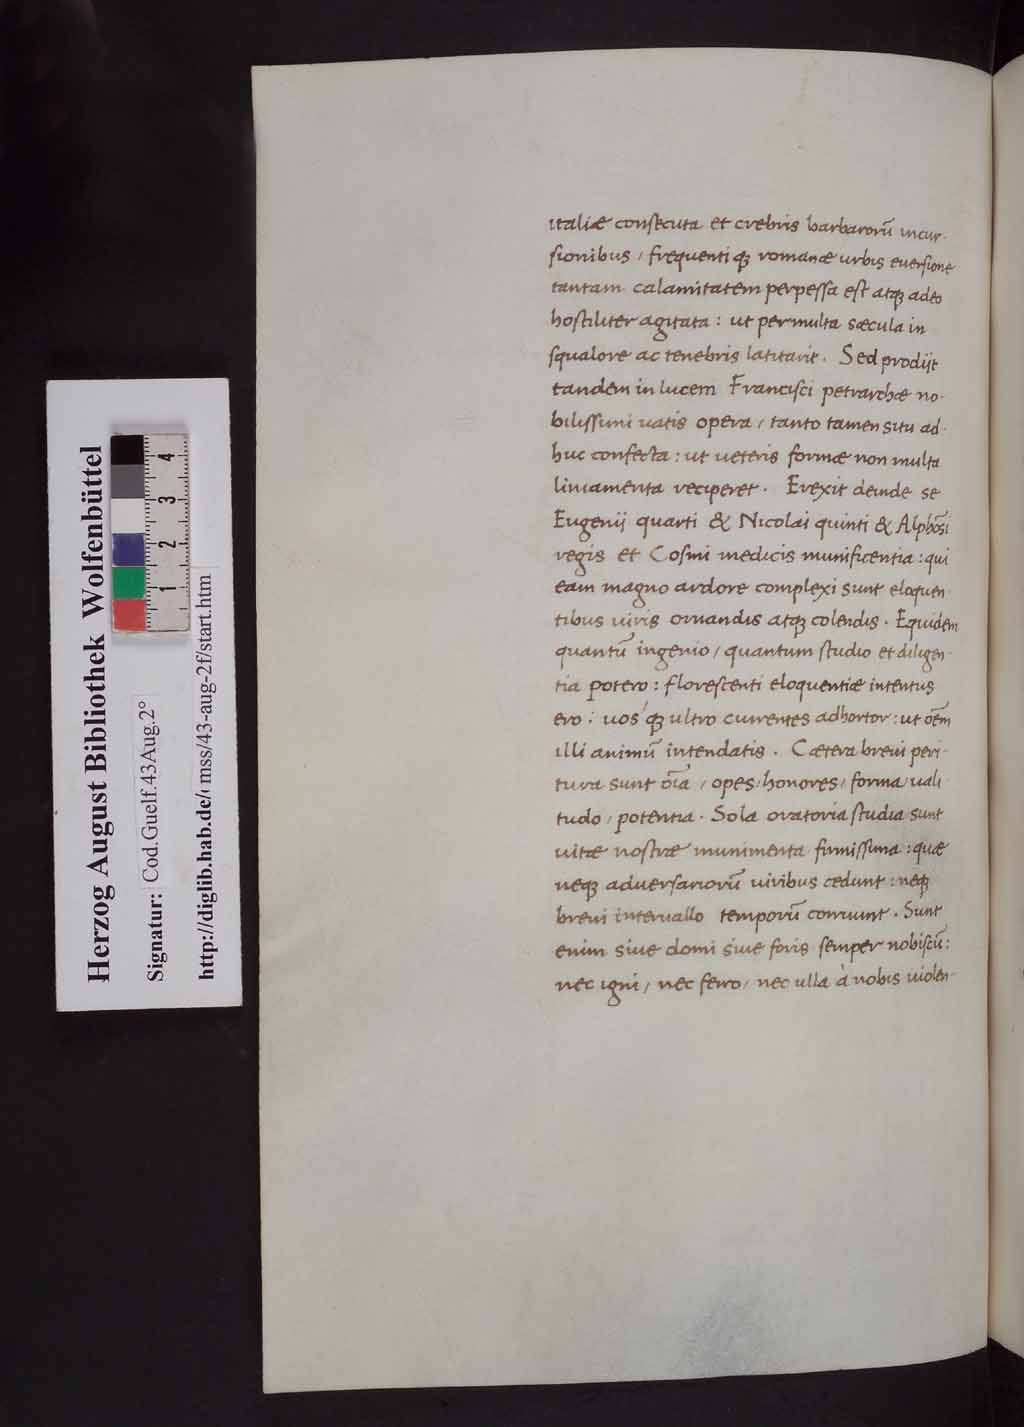 Herzog August Bibliothek Wolfenbüttel
Signatur: Cod.Guelf.43Aug.2°
http://diglib.hab.de/ mss/43-aug-2f/start.htm
1 2 3 4
italiæ consecuta et crebris barbarorū incur-
sionibus / frequentiqꝫ romanæ urbis euersione
tantam calamitatem perpessa est atqꝫ adeo
hostiliter agitata : ut permulta sæcula in
squalore ac tenebris latitarit . Sed prodijt
tandem in lucem Francisci petrarchæ no-
bilissimi uatis opera / tanto tamen situ ad-
huc confecta : ut ueteris formæ non multa
liniamenta reciperet . Erexit deinde se
Eugenij quarti & Nicolai quinti & Alphōsi
regis et Cosmi medicis munificentia : qui
eam magno ardore complexi sunt eloquen-
tibus uiris ornandis atqꝫ colendis . Equidem
quantū ingenio / quantum studio et diligen-
tia potero : florescenti eloquentiæ intentus
ero : uos'qꝫ ultro currentes adhortor : ut oēm
illi animū intendatis . Cætera breui peri-
tura sunt oīa / opes / honores / forma / uali
tudo / potentia . Sola oratoria studia sunt
uitæ nostræ munimenta firmissima : quæ
neqꝫ aduersariorū uiribus cedunt : neqꝫ
breui interuallo temporū corruunt . Sunt
enim siue domi siue foris semper nobiscū :
nec igni / nec ferro / nec ulla à nobis uiolen-